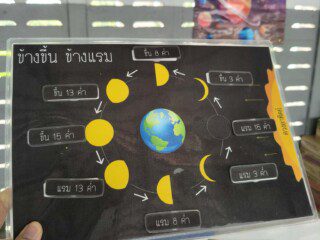 ข้างขึ้น ข้างแรม
ขึ้น 8 ค่ำ
ขึ้น 13 ค่ำ
ขึ้น 3 ค่ำ
ขึ้น 15 ค่ำ
แรม 15 ค่ำ
แรม 13 ค่ำ
แรม 3 ค่ำ
แรม 8 ค่ำ